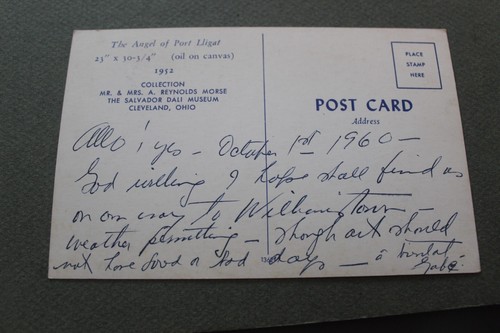 The Angel of Port Lligat
23" x 30-3/4" (oil on canvas)
1952
COLLECTION
MR. & MRS. A. REYNOLDS MORSE
THE SALVADOR DALI MUSEUM
CLEVELAND, OHIO
PLACE
STAMP
HERE
POST CARD
Address
Allo! yes - October 1st 1960 -
God willing I hope shall find us
on our way to Wilhamstown -
weather permitting - though art should
not have Good or bad days - à